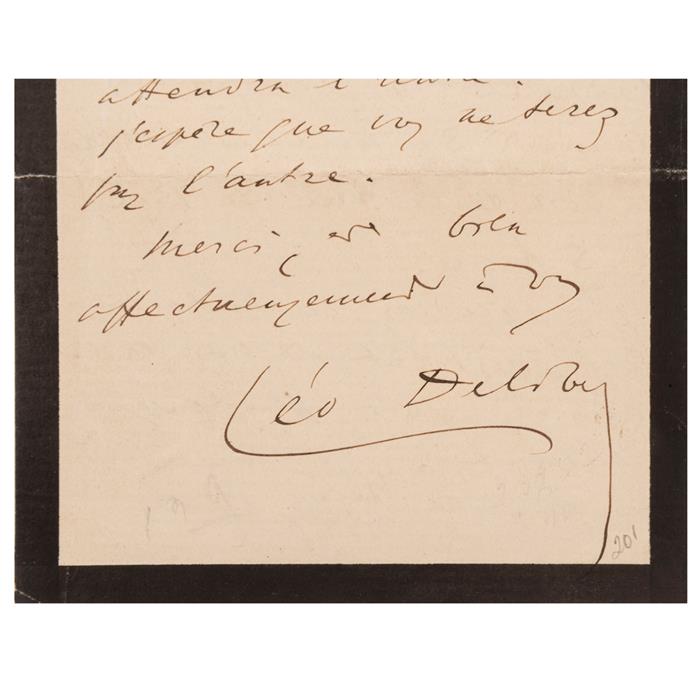 attendra l'autre.
j'espère que vous ne serez
pas l'autre.
Merci, et bien
affectueusement à vous
Léo Delibes
20'